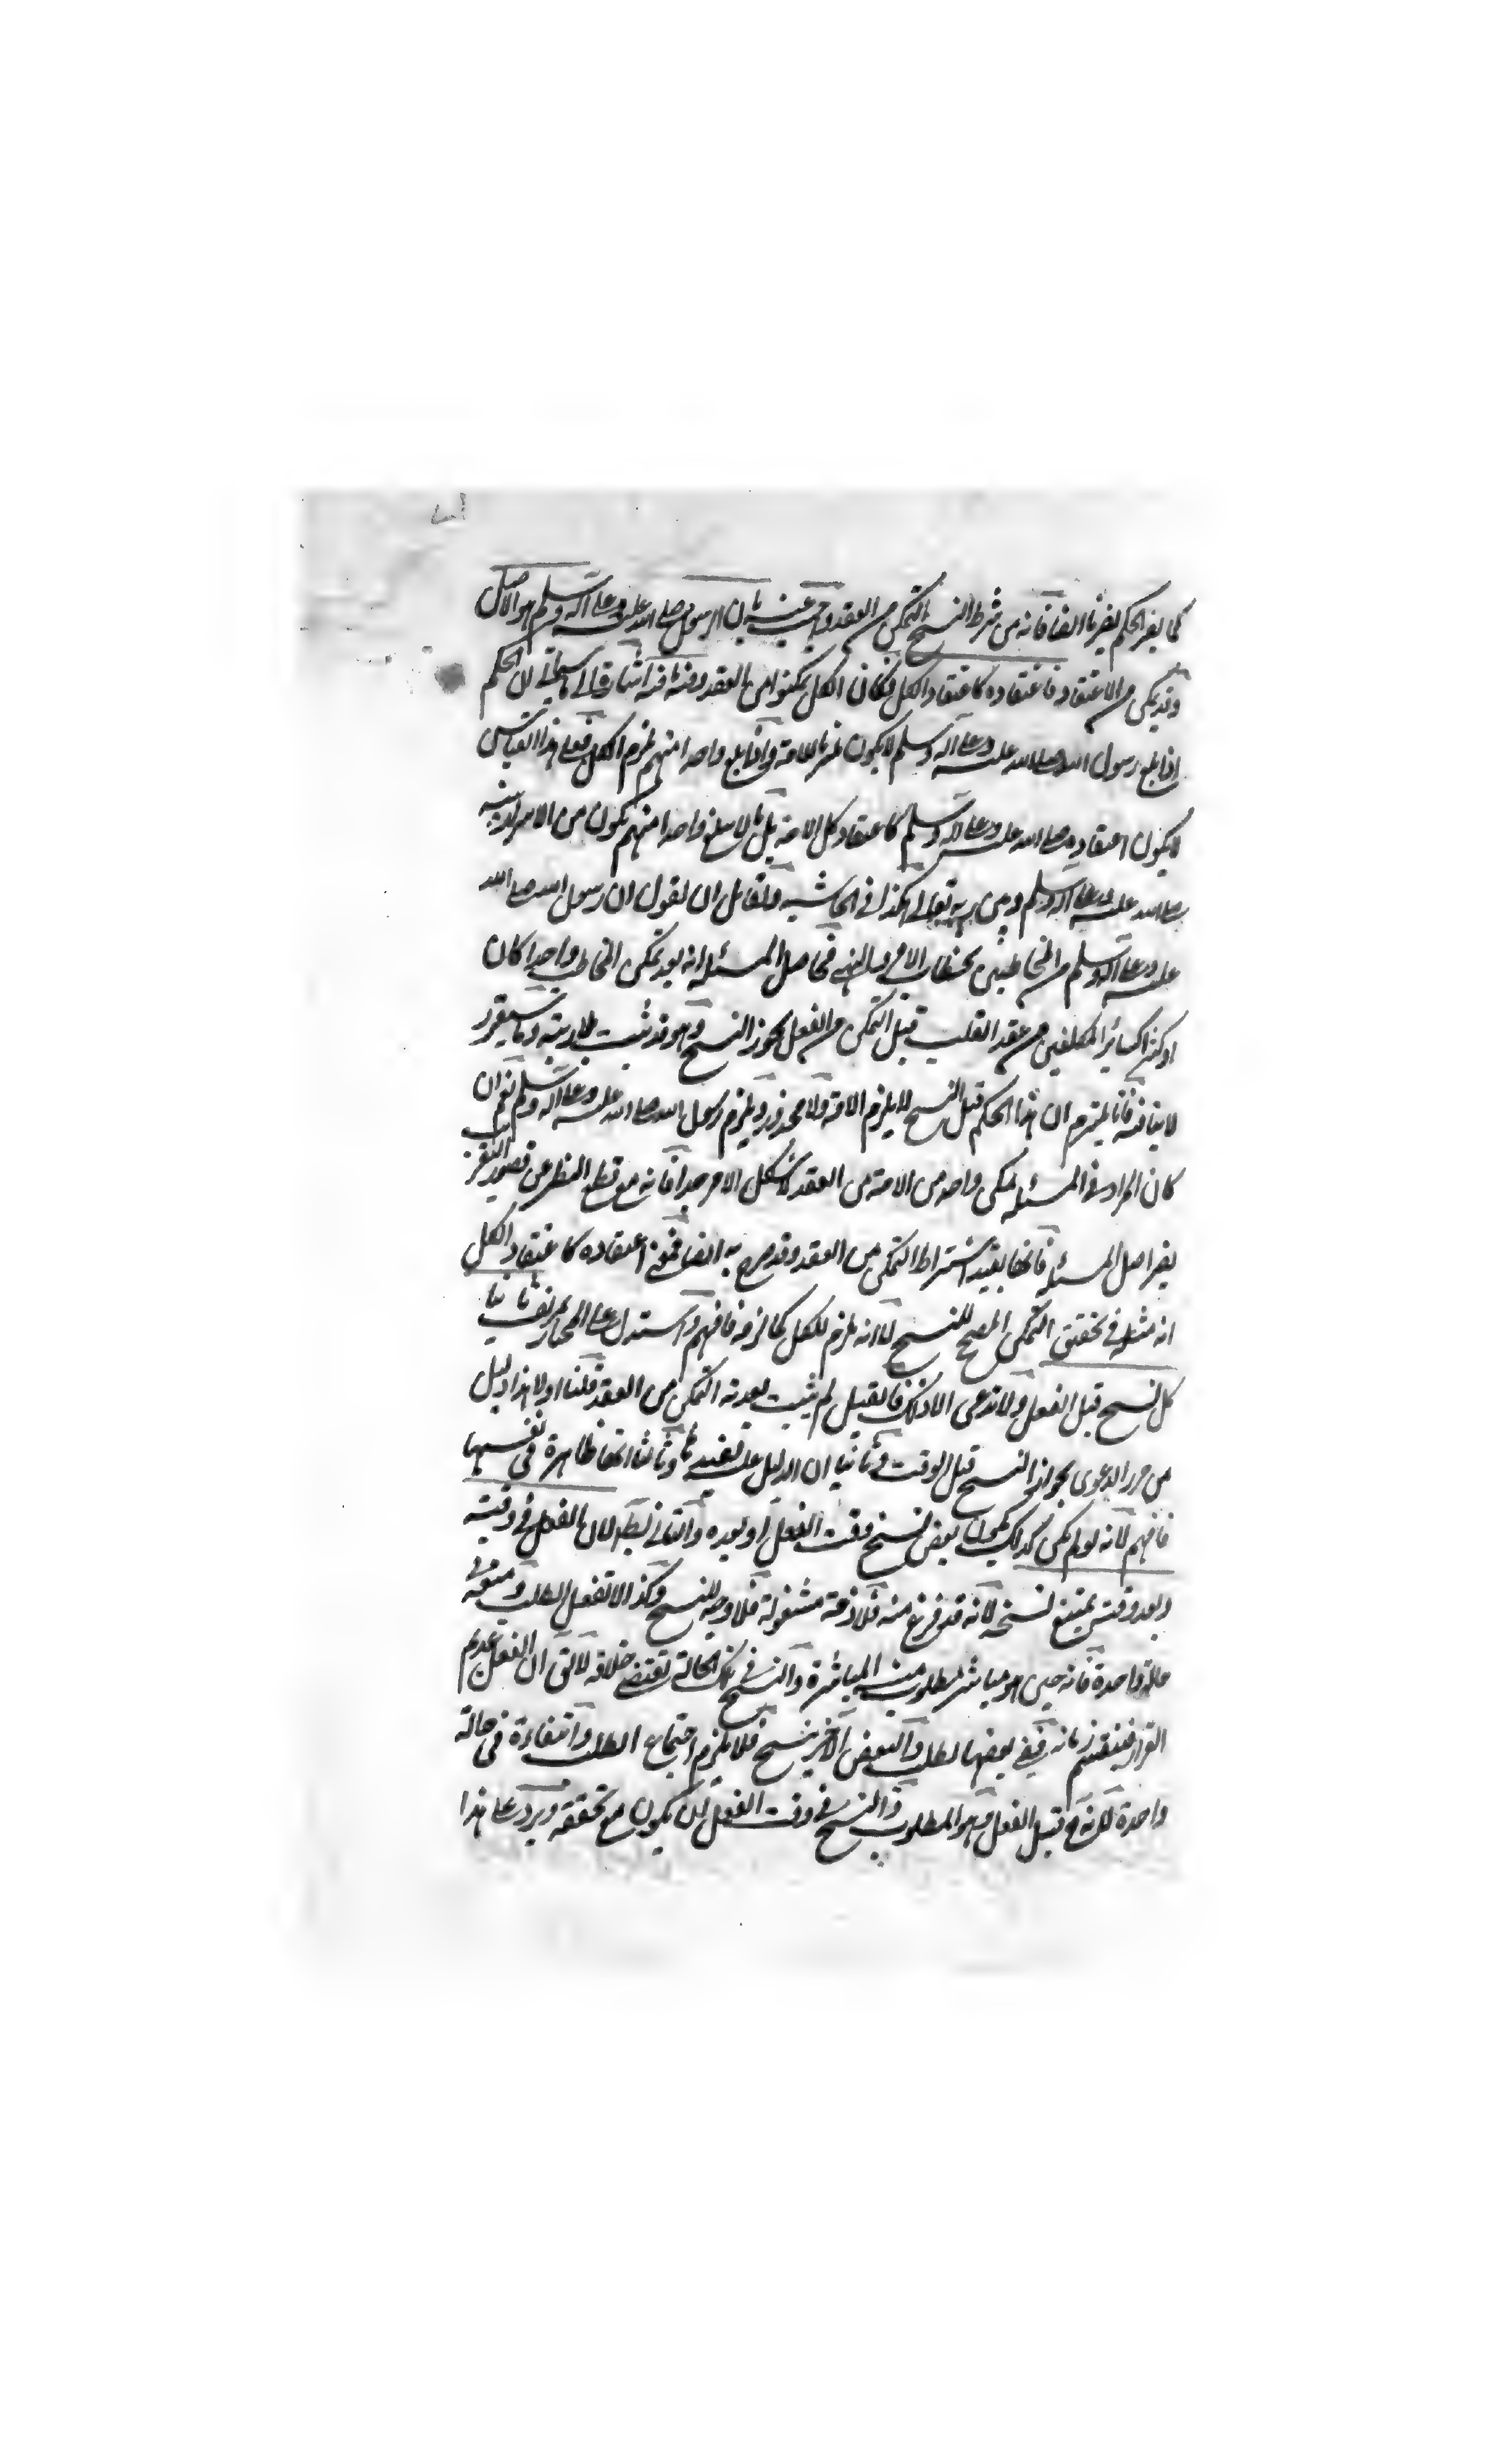 كما يضر الحكم يضرنا ايضا فانه من شرط النسخ التمكن من العقد واجيب عنه بان الرسول صلى الله عليه وعلى آله وسلم هو الاصل
وقد تمكن من الاعتقاد فاعتقاده كاعتقاد الكل فكان الكل تمكنوا من العقد وفيه ما فيه اشارة الى ما سيأتي ان الحكم
اذا بلغ رسول الله صلى الله عليه وعلى آله وسلم لا يكون للامة واذا بلغ واحدا منهم لزم الكل فعلى هذا القياس
لا يكون اعتقاده صلى الله عليه وعلى آله وسلم كاعتقاد كل الامة بل ما لا يبلغ واحدا منهم يكون من الاسرار بينه
صلى الله عليه وعلى آله وسلم ومن ربه تعالى هكذا في الحاشية ولقائل ان يقول ان رسول الله صلى الله
عليه وعلى آله وسلم من المخاطبين بخطاب الامر والنهي فحاصل المسئلة انه بعد تمكن المخاطب واحدا كان
او كثيرا كسائر المكلفين من عقد القلب قبل التمكن من الفعل يجوز النسخ وهو قد ثبت بلا ريبة وما سيقرر
لا ينافيه فانا نلتزم ان هذا الحكم قبل النسخ لا يلزم الامة ولا محذور ويلزم رسول الله صلى الله عليه وعلى آله وسلم نعم ان
كان المراد في المسئلة تمكن واحد من الامة من العقد لأشكل الامر جدا فانه مع قطع النظر عن قصور التقريب
يضر اصل المسئلة فانها بقيد اشتراط التمكن من العقد وقد صرح به ايضا فمعنى اعتقاده كاعتقاد الكل
انه مثله في تحقق التمكن المصحح للنسخ لا انه يلزم للكل كما لزمه فافهم واستدل على المختار ثانيا
كل نسخ قبل الفعل ولا ندعى الا ذلك فان قيل لم يثبت بعد التمكن من العقد قلنا اولا هذا دليل
من حرر الدعوى بجواز النسخ قبل الوقت وثانيا ان الدليل على وثالثا انها ظاهرة في نفسها
فافهم لانه لو لم يكن كذلك يكون بعض نسخ وقت الفعل او بعده والتالي باطل لان الفعل في وقته
وبعد وقته يمتنع نسخه لانه قد فرغ منه فلا ذمة مشغولة فلا وجه للنسخ وكذا لا تفعل لطلب ومنعه في
حالة واحدة فانه حين هو مباشر مطلوب منه المباشرة والنسخ في تلك الحالة يقتضي خلافه لا يق ان الفعل عديم
القرار فينقسم زمانه ففي بعضها لطلب والبعض الآخر ينسخ فلا يلزم اجتماع الطلب وانتفاءه في حالة
واحدة لانه قبل الفعل وهو المطلوب والنسخ في وقت الفعل ان يكون مع تحققه ويرد على هذا